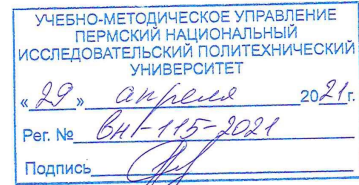 УЧЕБНО-МЕТОДИЧЕСКОЕ УПРАВЛЕНИЕ
ПЕРМСКИЙ НАЦИОНАЛЬНЫЙ
ИССЛЕДОВАТЕЛЬСКИЙ ПОЛИТЕХНИЧЕСКИЙ
УНИВЕРСИТЕТ
«29» апреля 2021г.
Рег. № вн-115-2021
Подпись